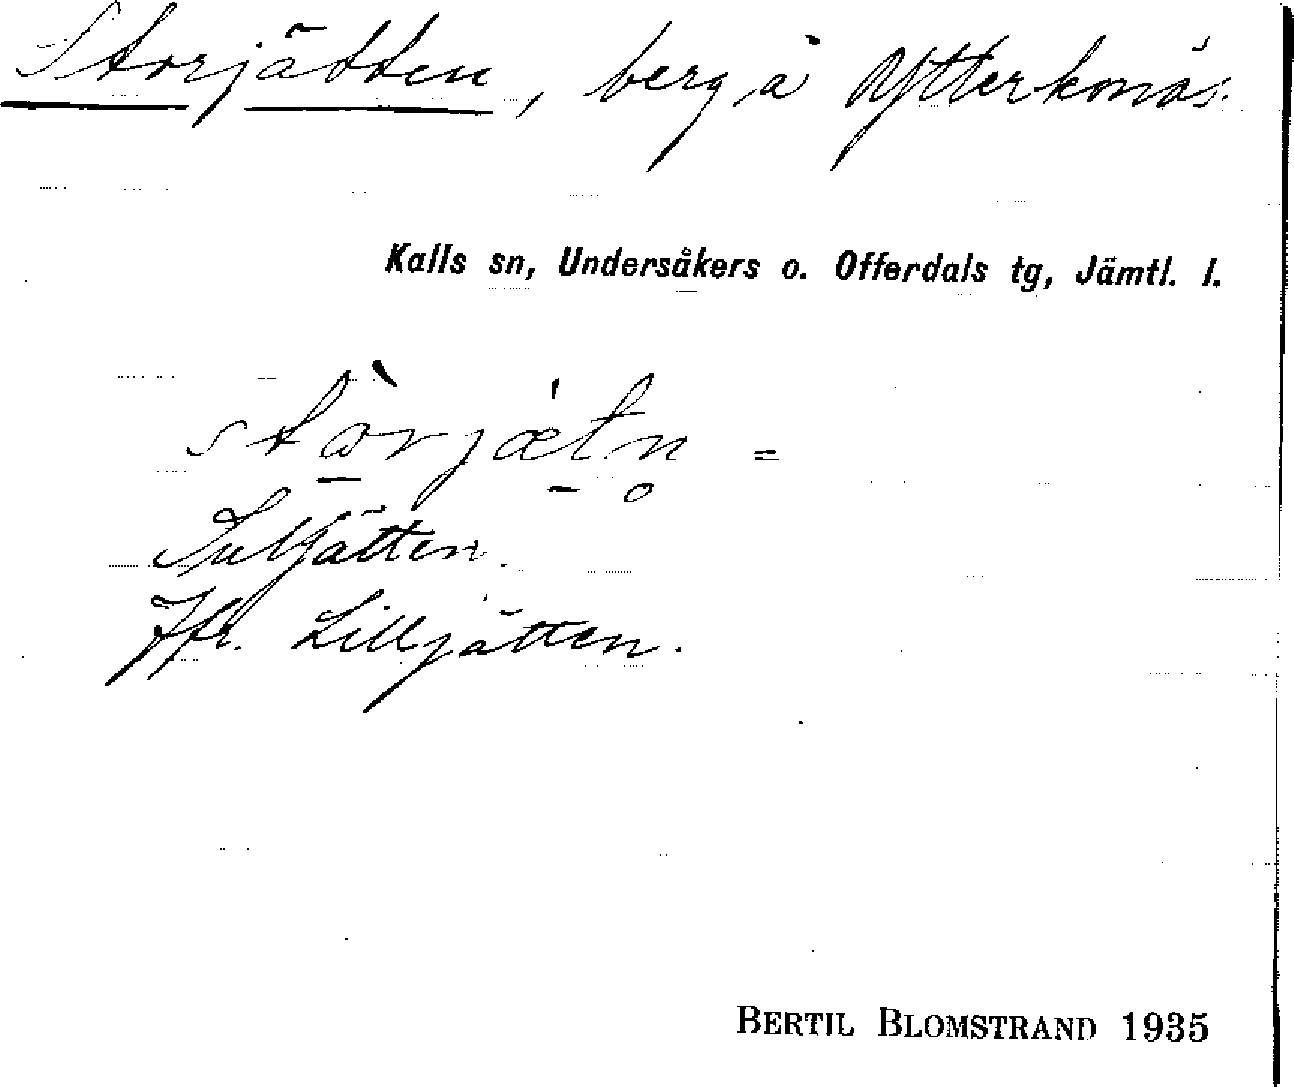 Storjätten, berg å Ytterkonäs.
Kalls sn, Undersåkers o. Offerdals tg, Jämtl. l.
stòrjætn̥ =
Suljätten.
Jfr. Lilljätten.
BERTIL BLOMSTRAND 1935